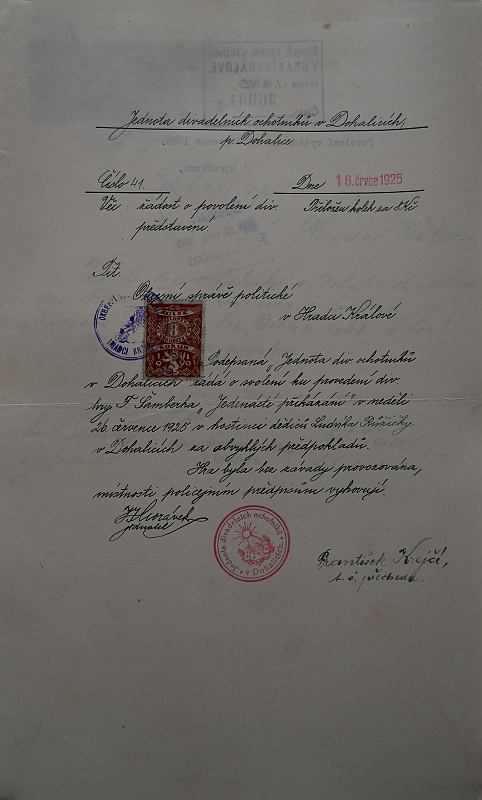 Jednota divadelních ochotníků v Dohalicích,
p. Dohalice.
Číslo 41.
Dne 18. črvce 1925
Věc: žádost o povolení div.
představení.
Přiložen kolek za 8 Kč
Okresní správě politické
v Hradci Králové
8
Podepsaná „Jednota div. ochotníků
v Dohalicích" žádá o svolení ku provedení div.
hry F. Šamberka „Jedenácté přikázání" v neděli
26 července 1925 v hostinci dědiců Ludvíka Růžičky
v Dohalicích za obvyklých předpokladů.
Hra byla bez závady provozována,
místnosti policejním předpisům vyhovují.
jednatel
Jednota divadelních ochotníků
v Dohalicích
František Krejčí,
t. č. předseda.